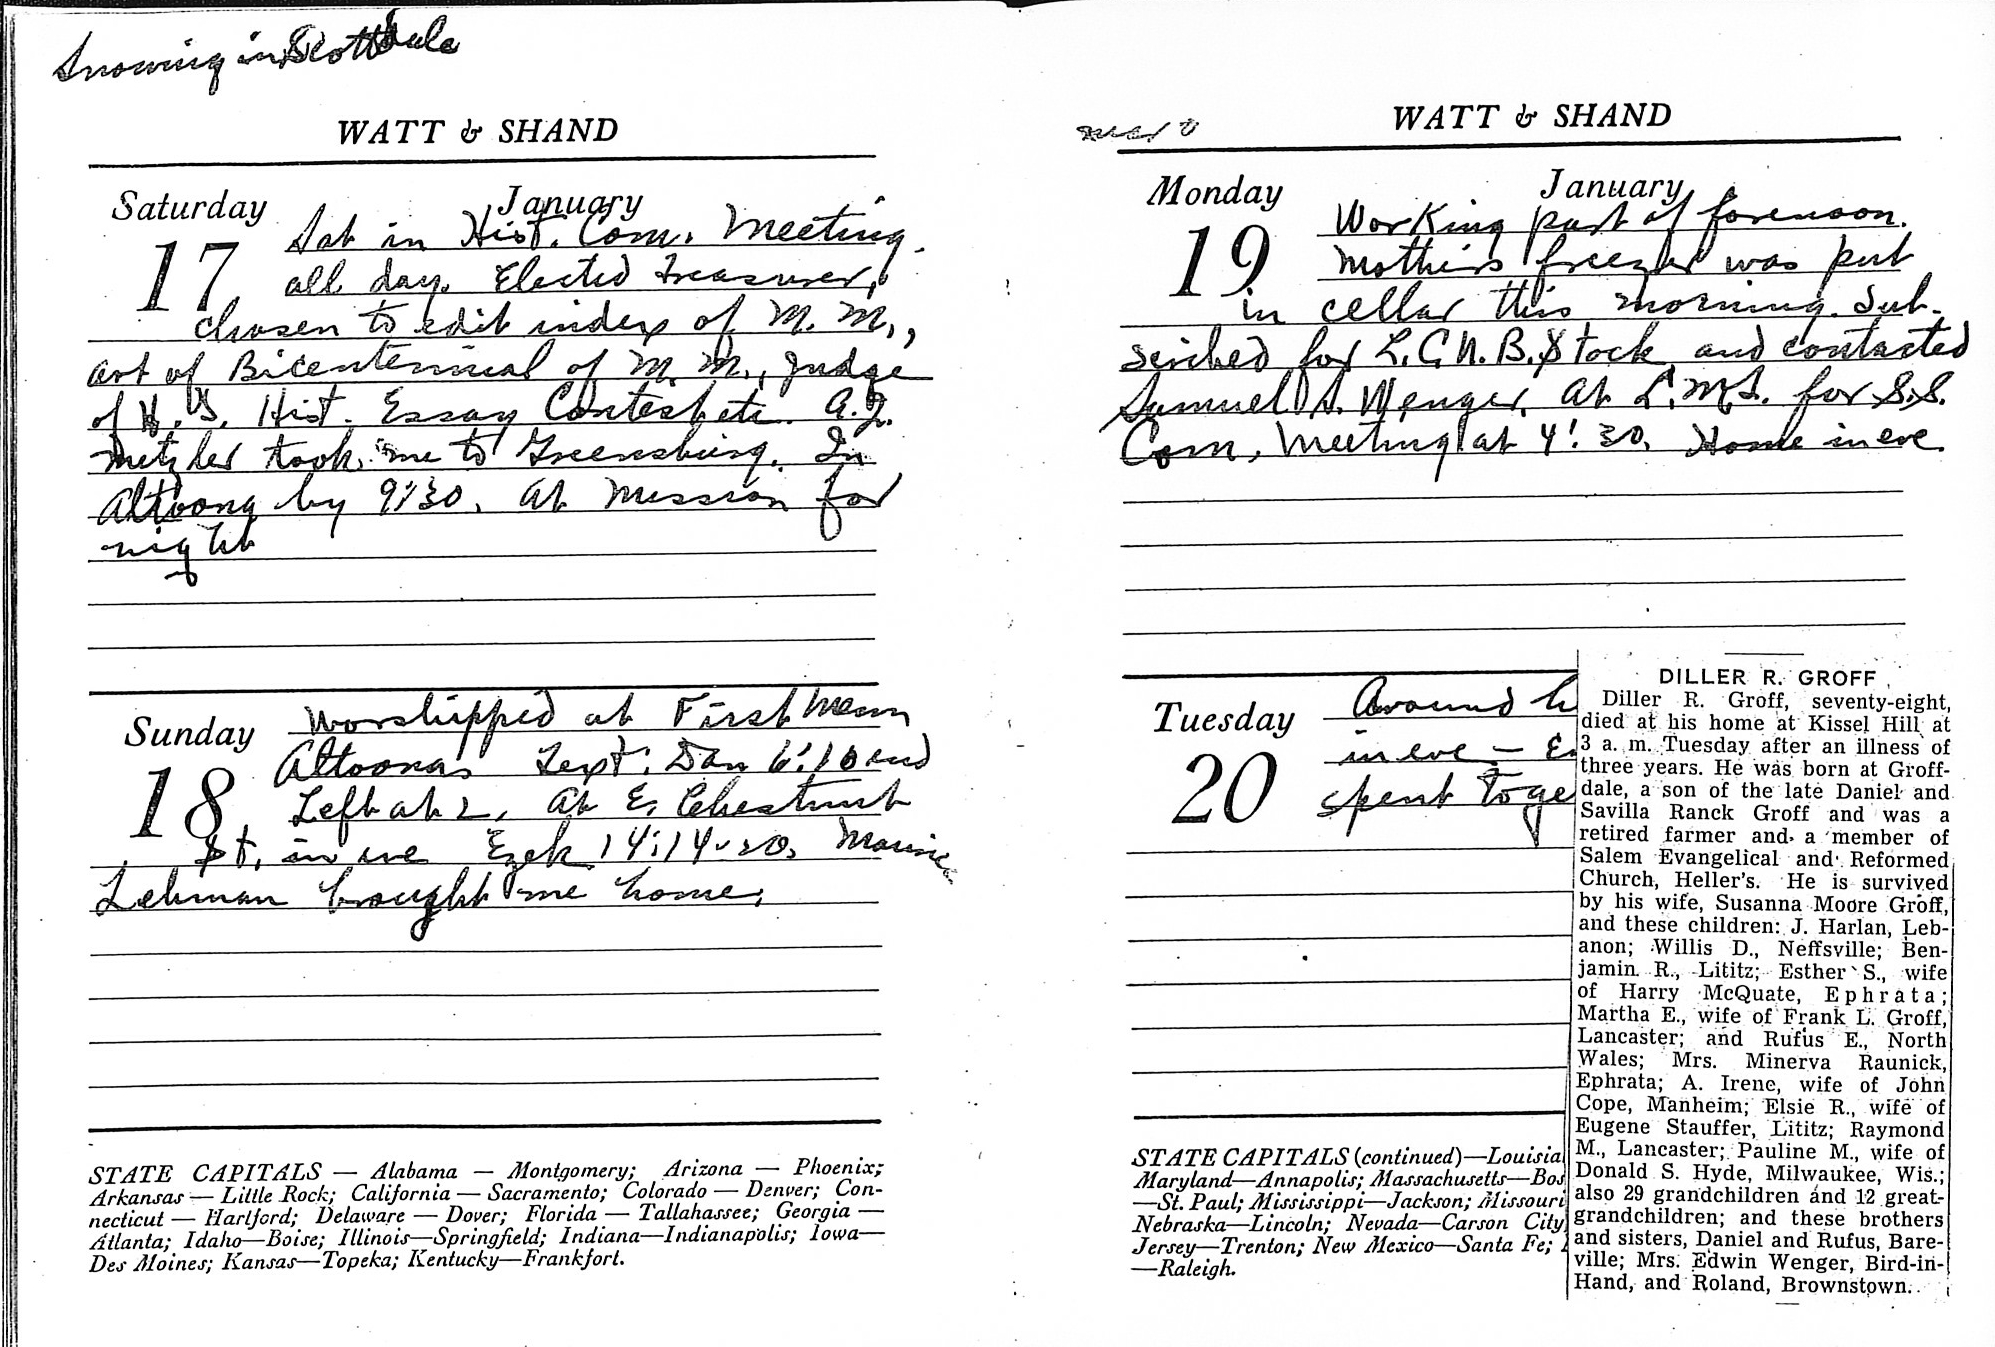 Snowing in Scottdale
WATT & SHAND
Saturday January
17
Sat in Hist. Com. Meeting.
all day. Elected Treasurer,
chosen to edit index of M. M.,
art of Bicentennial of M. M., Judge
of H. S. Hist. Essay Contest etc. A. J.
Metzler took me to Greensburg. In
Altoona by 9:30. At Mission for
night
Sunday
18
Worshipped at First Menn
Altoona. Text: Dan 6:10 and
Left at 2. At E. Chestnut
St. in eve Ezek 14:14-20. Maurice
Lehman brought me home.
STATE CAPITALS — Alabama — Montgomery; Arizona — Phoenix;
Arkansas — Little Rock; California — Sacramento; Colorado — Denver; Con-
necticut — Hartford; Delaware — Dover; Florida — Tallahassee; Georgia —
Atlanta; Idaho—Boise; Illinois—Springfield; Indiana—Indianapolis; Iowa—
Des Moines; Kansas—Topeka; Kentucky—Frankfort.
WATT & SHAND
Monday January
19
Working part of forenoon.
Mothers freezer was put
in cellar this morning. Sub-
scribed for L. C. N. B. Stock and contacted
Samuel S. Wenger. At L. M. S. for S. S.
Com. Meeting at 4:30. Home in eve
Tuesday
20
Around h
in eve —
spent toge
STATE CAPITALS (continued)—Louisia
Maryland—Annapolis; Massachusetts—Bos
—St. Paul; Mississippi—Jackson; Missouri
Nebraska—Lincoln; Nevada—Carson City
Jersey—Trenton; New Mexico—Santa Fe;
—Raleigh.
DILLER R. GROFF
Diller R. Groff, seventy-eight,
died at his home at Kissel Hill at
3 a. m. Tuesday after an illness of
three years. He was born at Groff-
dale, a son of the late Daniel and
Savilla Ranck Groff and was a
retired farmer and a member of
Salem Evangelical and Reformed
Church, Heller's. He is survived
by his wife, Susanna Moore Groff,
and these children: J. Harlan, Leb-
anon; Willis D., Neffsville; Ben-
jamin R., Lititz; Esther S., wife
of Harry McQuate, Ephrata;
Martha E., wife of Frank L. Groff,
Lancaster; and Rufus E., North
Wales; Mrs. Minerva Raunick,
Ephrata; A. Irene, wife of John
Cope, Manheim; Elsie R., wife of
Eugene Stauffer, Lititz; Raymond
M., Lancaster; Pauline M., wife of
Donald S. Hyde, Milwaukee, Wis.;
also 29 grandchildren and 12 great-
grandchildren; and these brothers
and sisters, Daniel and Rufus, Bare-
ville; Mrs. Edwin Wenger, Bird-in-
Hand, and Roland, Brownstown.